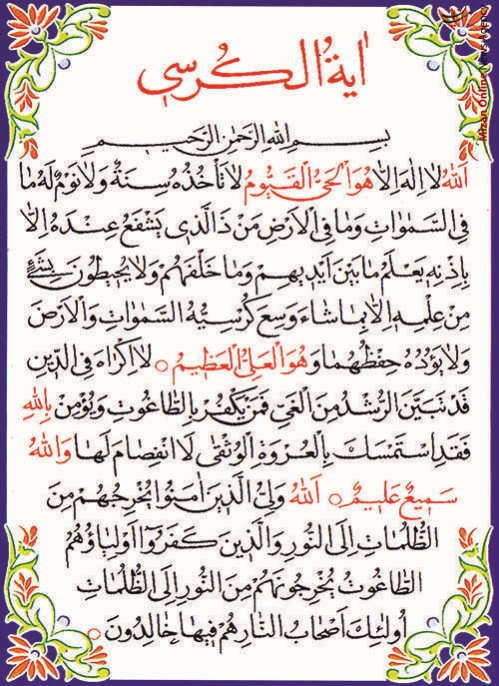 اٰيةُ الكُرسي
بِسمِ اللهِ الرَّحمٰنِ الرَّحيمِ
اَللهُ لا اِلٰهَ اِلاّ هُوَ الْحَيُّ الْقَيُّومُ لا تَأْخُذُهُ سِنَةٌ وَلا نَوْمٌ لَهُ ما
فِي السَّمٰواتِ وَما فِي الْاَرْضِ مَنْ ذَا الَّذي يَشْفَعُ عِنْدَهُ اِلاّ
بِاِذْنِهِ يَعْلَمُ ما بَيْنَ اَيْديهِمْ وَما خَلْفَهُمْ وَلا يُحيطُونَ بِشَيْءٍ
مِنْ عِلْمِهِ اِلاّ بِما شاءَ وَسِعَ كُرْسِيُّهُ السَّمٰواتِ وَالْاَرْضَ
وَلا يَؤُدُهُ حِفْظُهُما وَهُوَ الْعَلِيُّ الْعَظيمُ ○ لا اِكْراهَ فِي الدّينِ
قَدْ تَبَيَّنَ الرُّشْدُ مِنَ الْغَيِّ فَمَنْ يَكْفُرْ بِالطّاغُوتِ وَيُؤْمِنْ بِاللهِ
فَقَدِ اسْتَمْسَكَ بِالْعُرْوَةِ الْوُثْقٰى لَا انْفِصامَ لَها وَاللهُ
سَميعٌ عَليمٌ ○ اَللهُ وَلِيُّ الَّذينَ اٰمَنُوا يُخْرِجُهُمْ مِنَ
الظُّلُماتِ اِلَى النُّورِ وَالَّذينَ كَفَرُوا اَوْلِياؤُهُمُ
الطّاغُوتُ يُخْرِجُونَهُمْ مِنَ النُّورِ اِلَى الظُّلُماتِ
اُولٰئِكَ اَصْحابُ النّارِ هُمْ فيها خالِدُونَ ○
Mizan Online News Agency